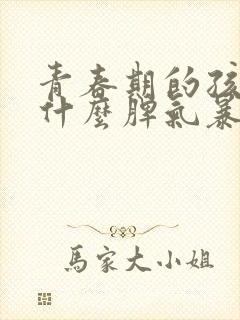 青春期的孩
什麼脾氣暴
馬家大小姐